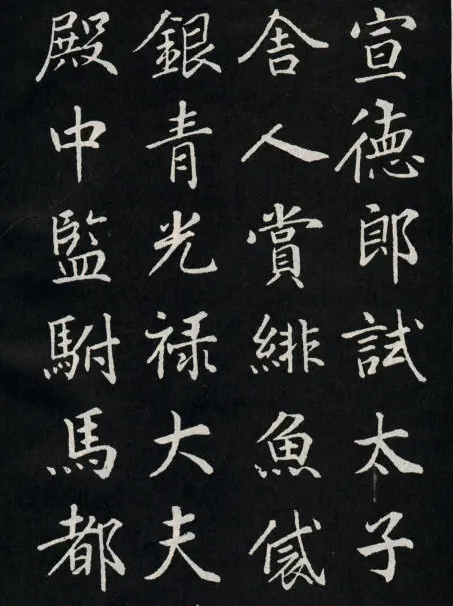 宣徳郎試太子
舎人賞緋魚袋
銀青光禄大夫
殿中監駙馬都